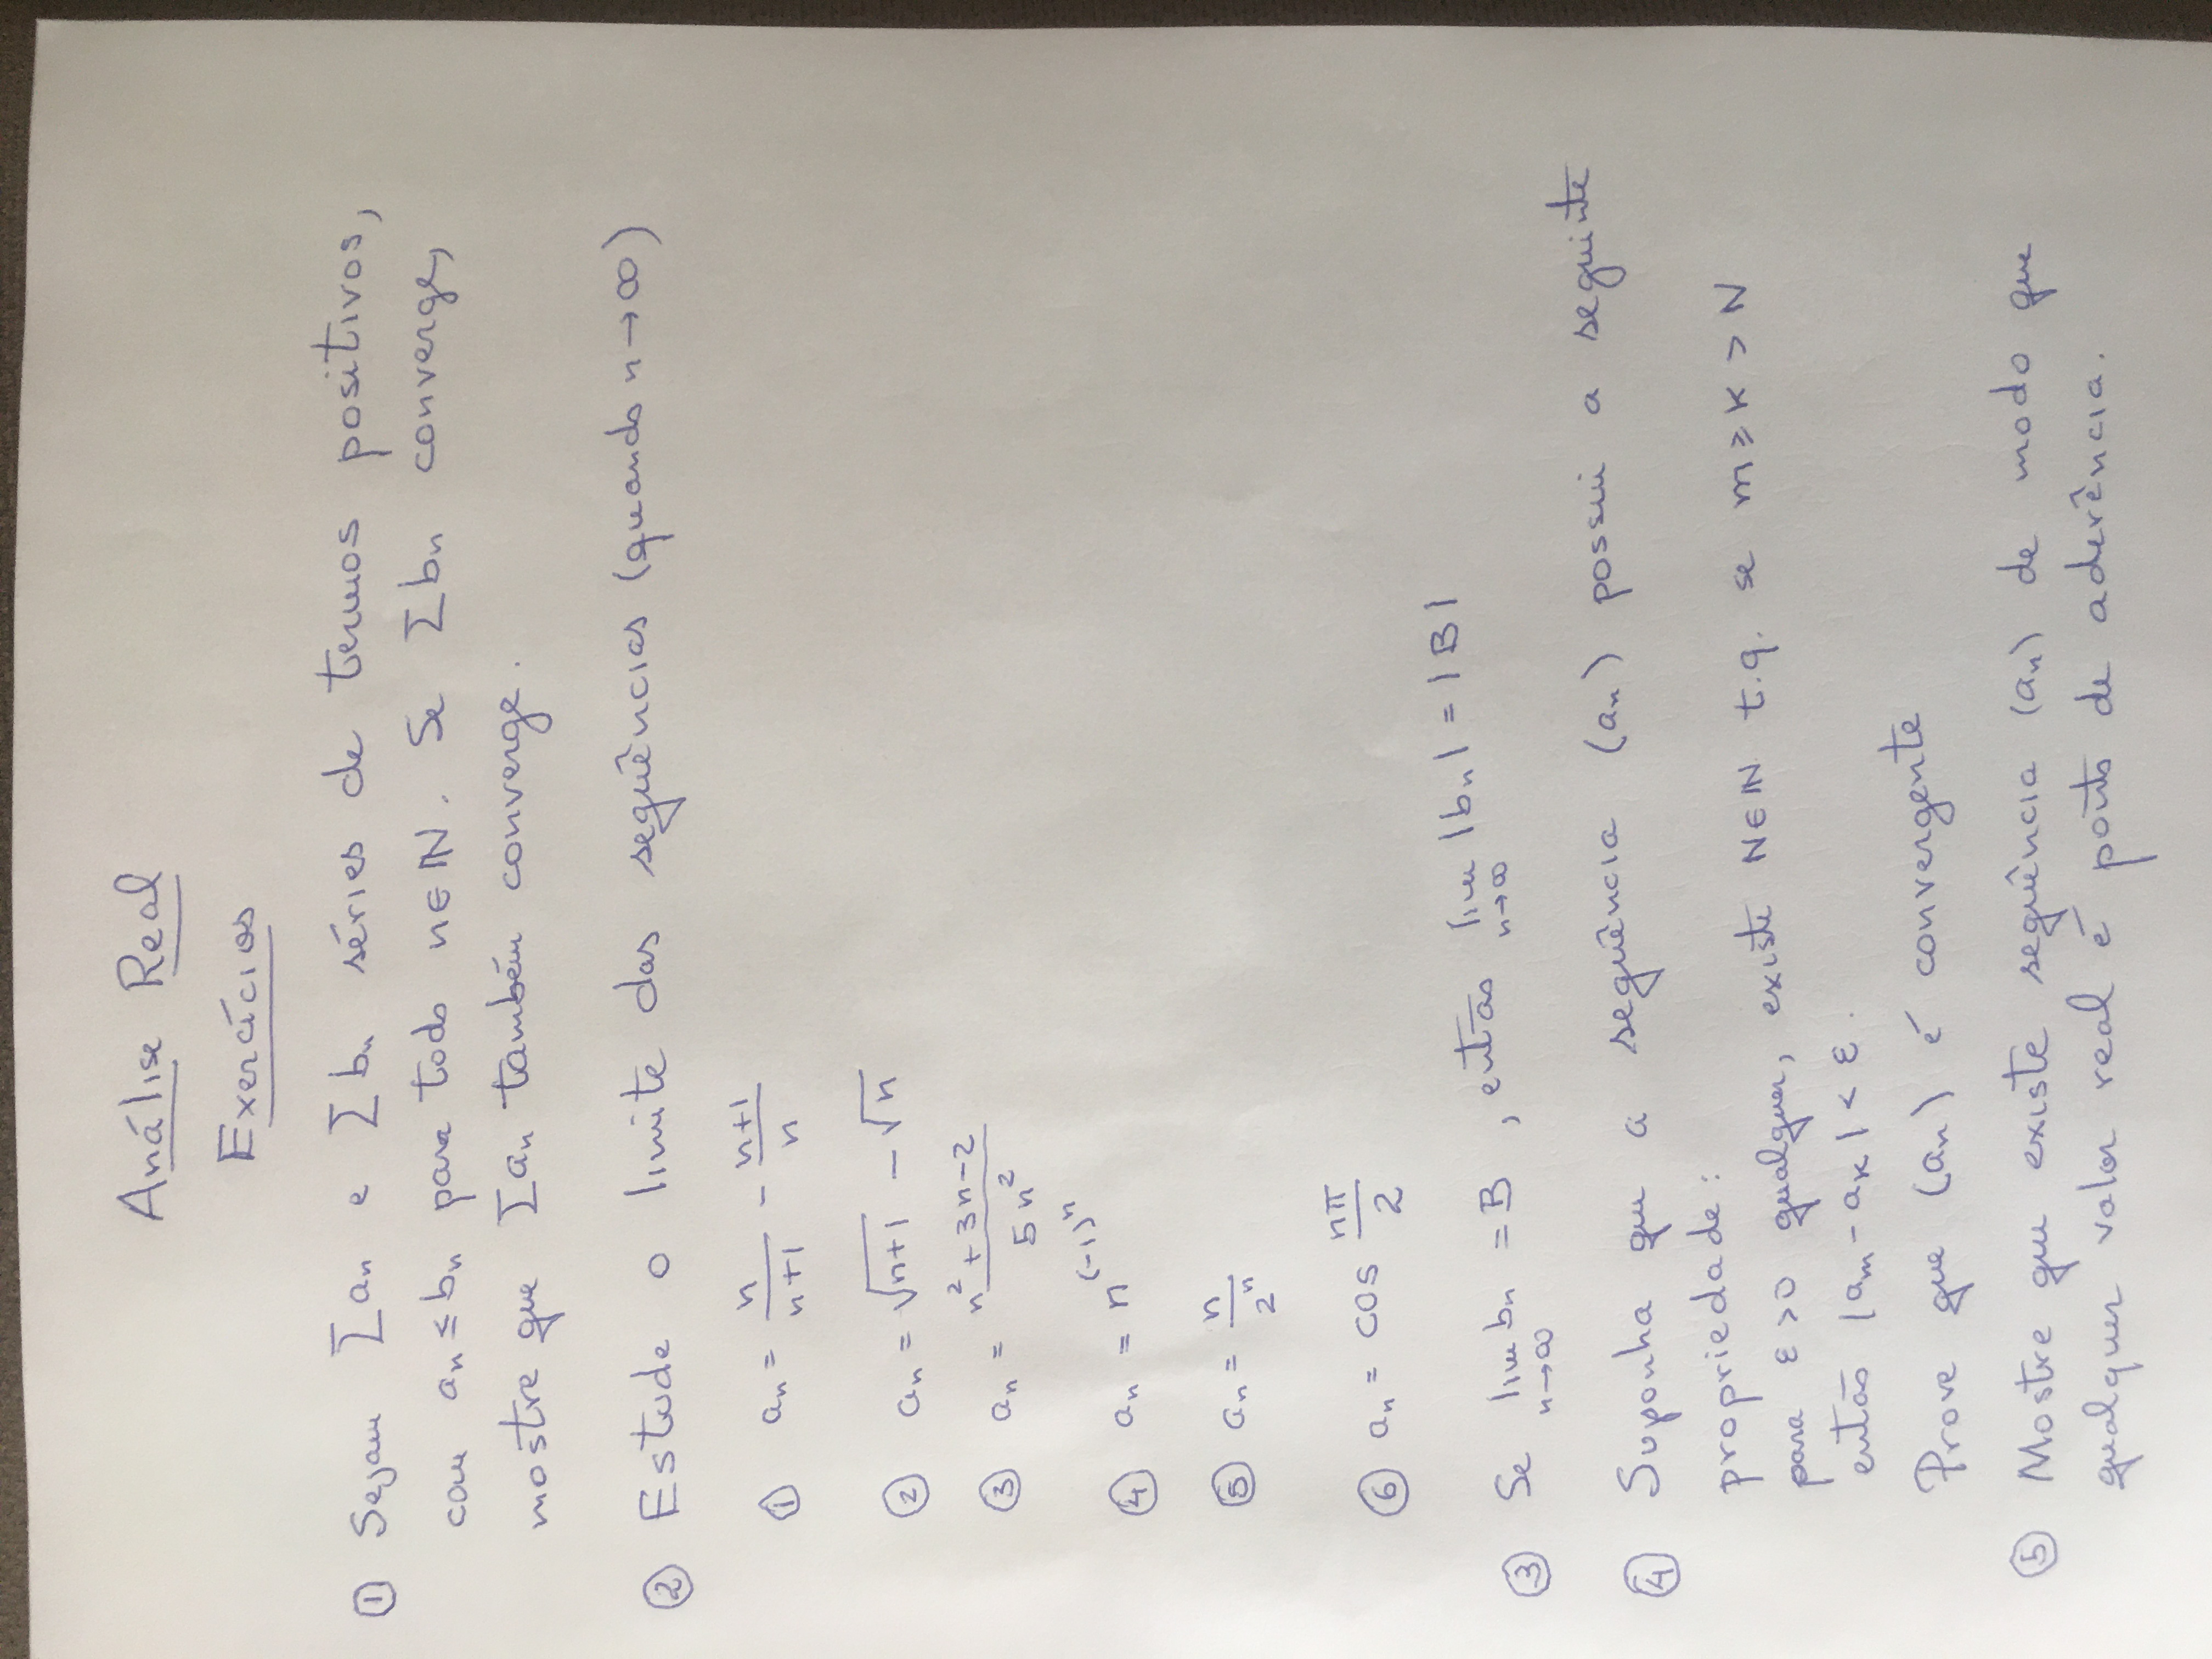 Análise Real
Exercícios
① Sejam ∑aₙ e ∑bₙ séries de termos positivos,
com aₙ ≤ bₙ para todo n∈ℕ. Se ∑bₙ converge,
mostre que ∑aₙ também converge.
② Estude o limite das sequências (quando n→∞)
① aₙ = n/(n+1) - (n+1)/n
② aₙ = √(n+1) - √n
③ aₙ = (n²+3n-2)/(5n²)
④ aₙ = n^((-1)^n)
⑤ aₙ = n/2ⁿ
⑥ aₙ = cos nπ/2
③ Se lim_{n→∞} bₙ = B, então lim_{n→∞} |bₙ| = |B|
④ Suponha que a sequência (aₙ) possui a seguinte
propriedade:
para ε>0 qualquer, existe N∈ℕ t.q. se m ≥ k > N
então |aₘ - aₖ| < ε.
Prove que (aₙ) é convergente
⑤ Mostre que existe sequência (aₙ) de modo que
qualquer valor real é ponto de aderência.